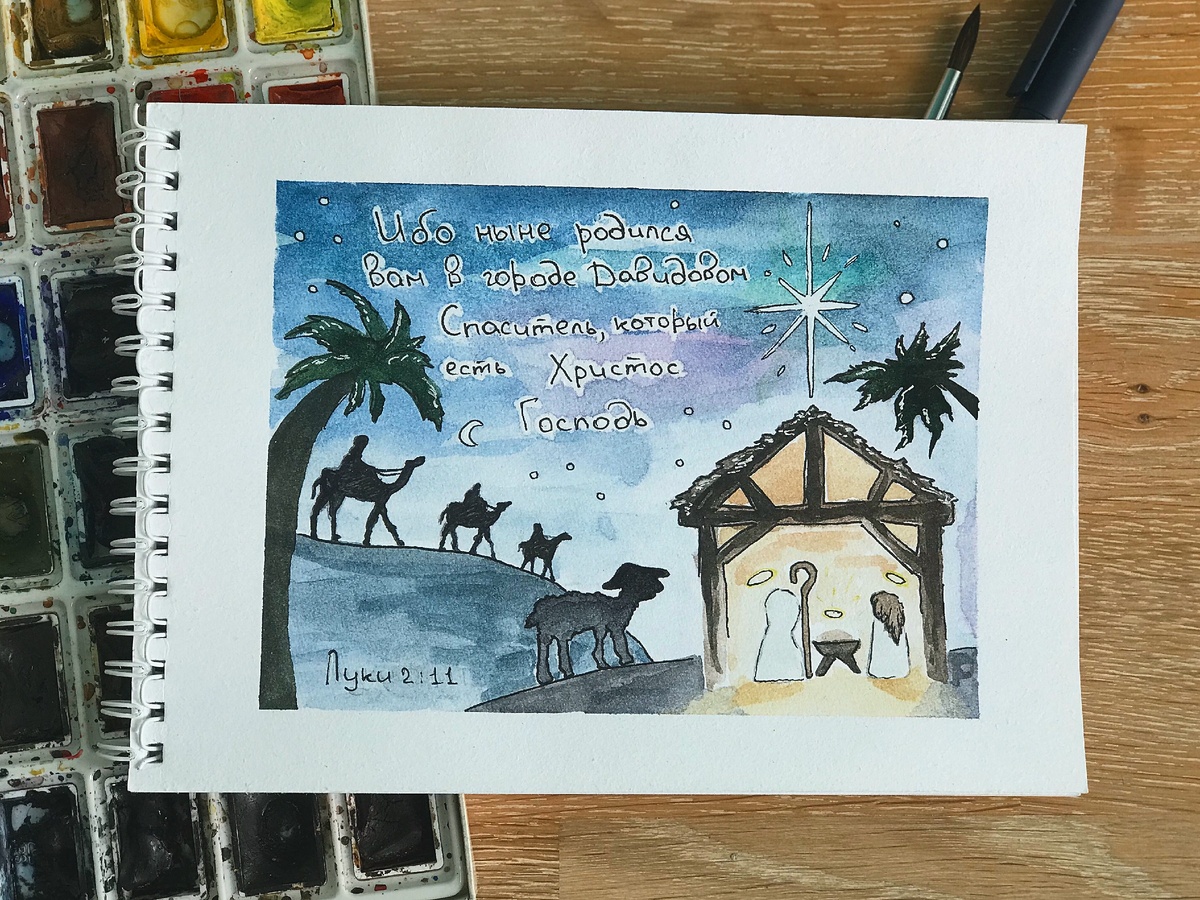 Ибо ныне родился
вам в городе Давидовом
Спаситель, который
есть Христос
Господь
Луки 2:11